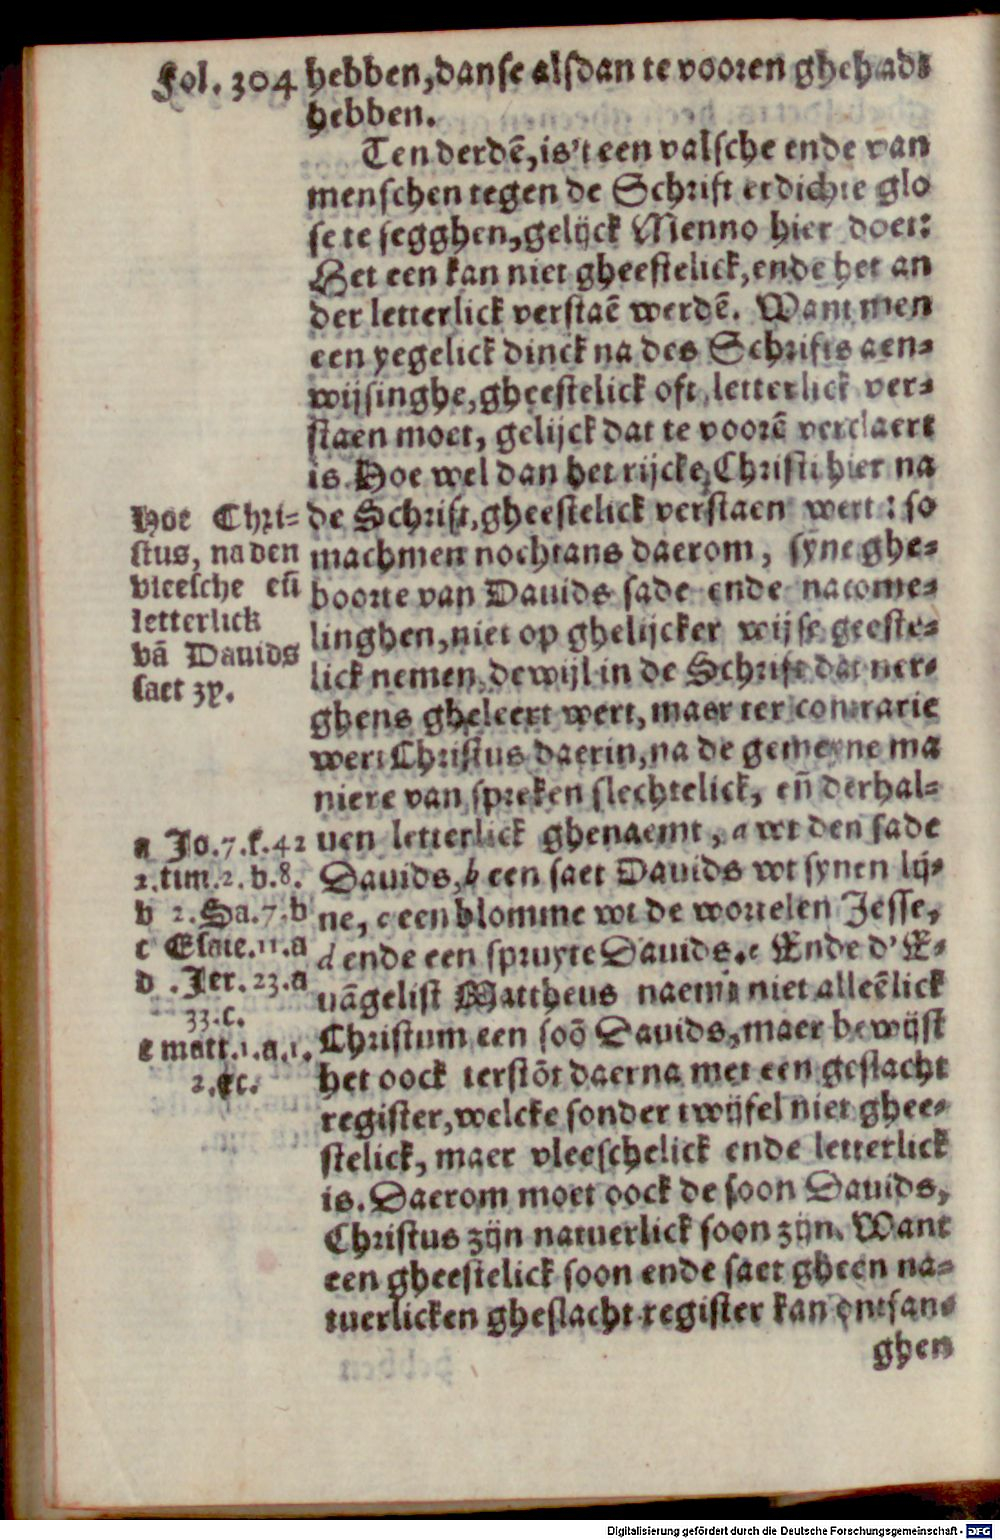 Fol. 304
hebben, danse alsdan te vooren ghehadt
hebben.
Ten derdē, is't een valsche ende van
menschen tegen de Schrift erdichte glo
se te segghen, gelijck Menno hier doet:
Het een kan niet gheestelick, ende het an
der letterlick verstaē werdē. Want men
een yegelick dinck na des Schrifts aen-
wijsinghe, gheestelick oft letterlick ver-
staen moet, gelijck dat te voorē verclaert
is. Hoe wel dan het rijcke Christi hier na
de Schrift, gheestelick verstaen wert: so
machmen nochtans daerom, syne ghe-
boorte van Dauids sade ende nacome-
linghen, niet op ghelijcker wijse geeste-
lick nemen, dewijl in de Schrift dat ner-
ghens gheleert wert, maer ter contrarie
wert Christus daerin, na de gemeyne ma
niere van spreken slechtelick, eñ derhal-
uen letterlick ghenaemt, a wt den sade
Dauids, b een saet Dauids wt synen lij-
ne, c een blomme wt de wortelen Jesse,
d ende een spruyte Dauids. e Ende d'E-
uāgelist Mattheus naemt niet alleēlick
Christum een soō Dauids, maer bewijst
het oock terstōt daerna met een geslacht
register, welcke sonder twijfel niet ghee-
stelick, maer vleeschelick ende letterlick
is. Daerom moet oock de soon Dauids,
Christus zijn natuerlick soon zijn. Want
een gheestelick soon ende saet gheen na-
tuerlicken gheslacht register kan ontfan-
ghen
Hoe Chri-
stus, na den
vleesche eñ
letterlick
vā Dauids
saet zy.
a Jo. 7. f. 42
2. tim. 2. b. 8.
b 2. Sa. 7. b
c Esaie. 11. a
d . Jer. 23. a
33. c.
e matt. 1. a. 1.
2. &c.
Digitalisierung gefördert durch die Deutsche Forschungsgemeinschaft - DFG